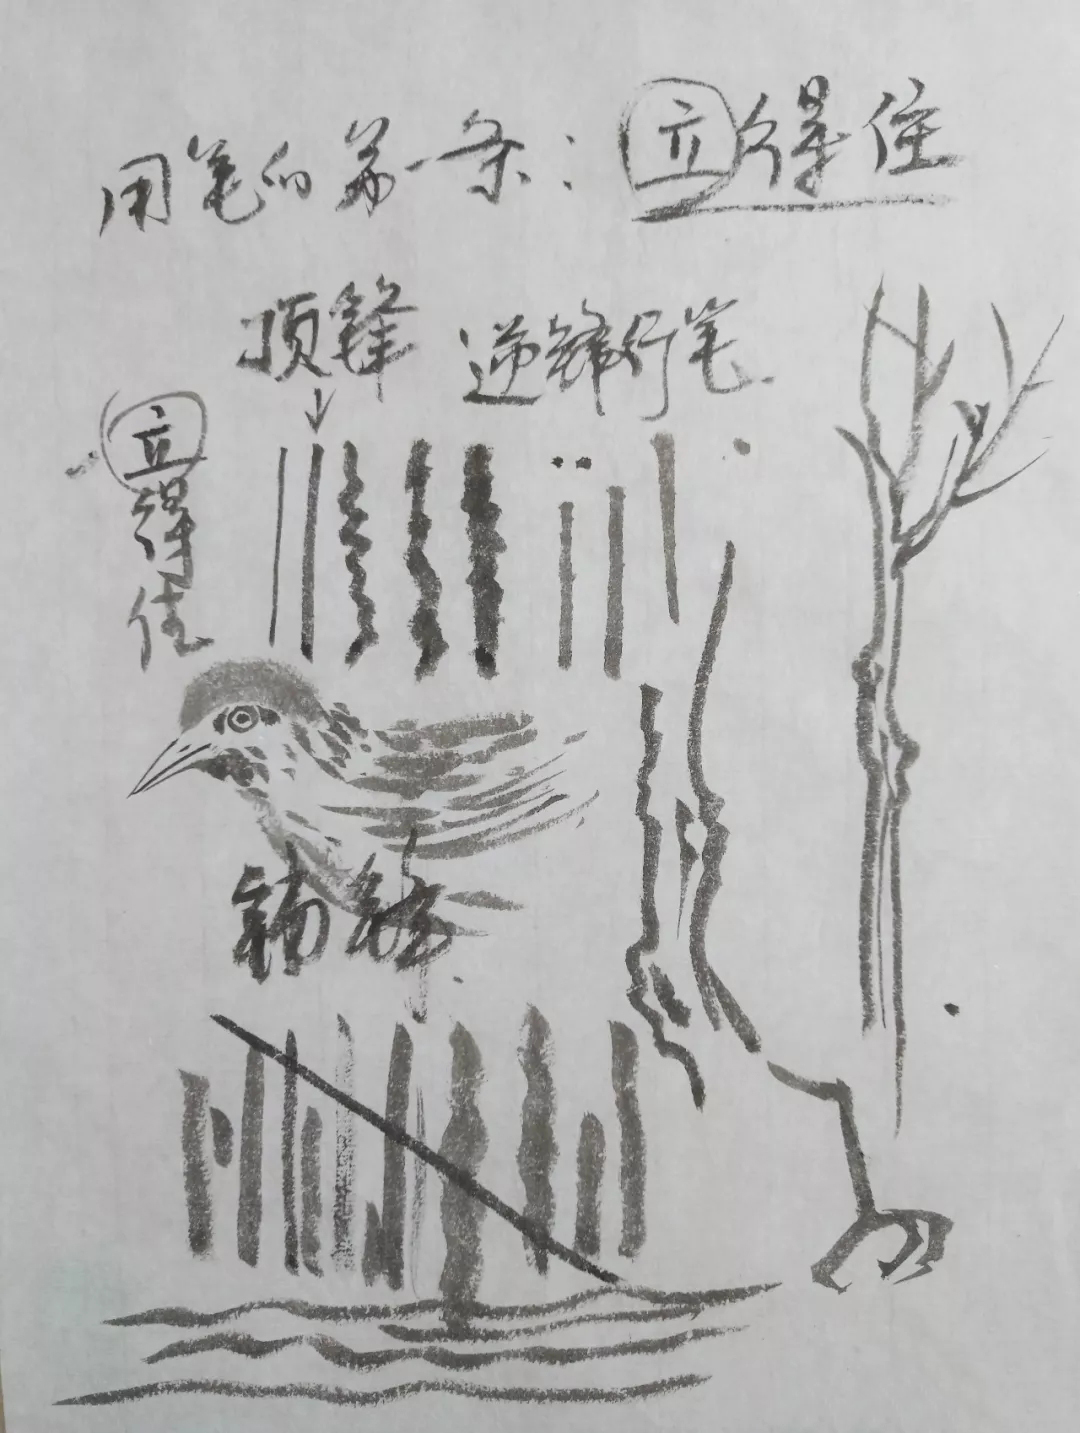 用笔的第一条：立得住
顶锋 逆锋行笔
立得住